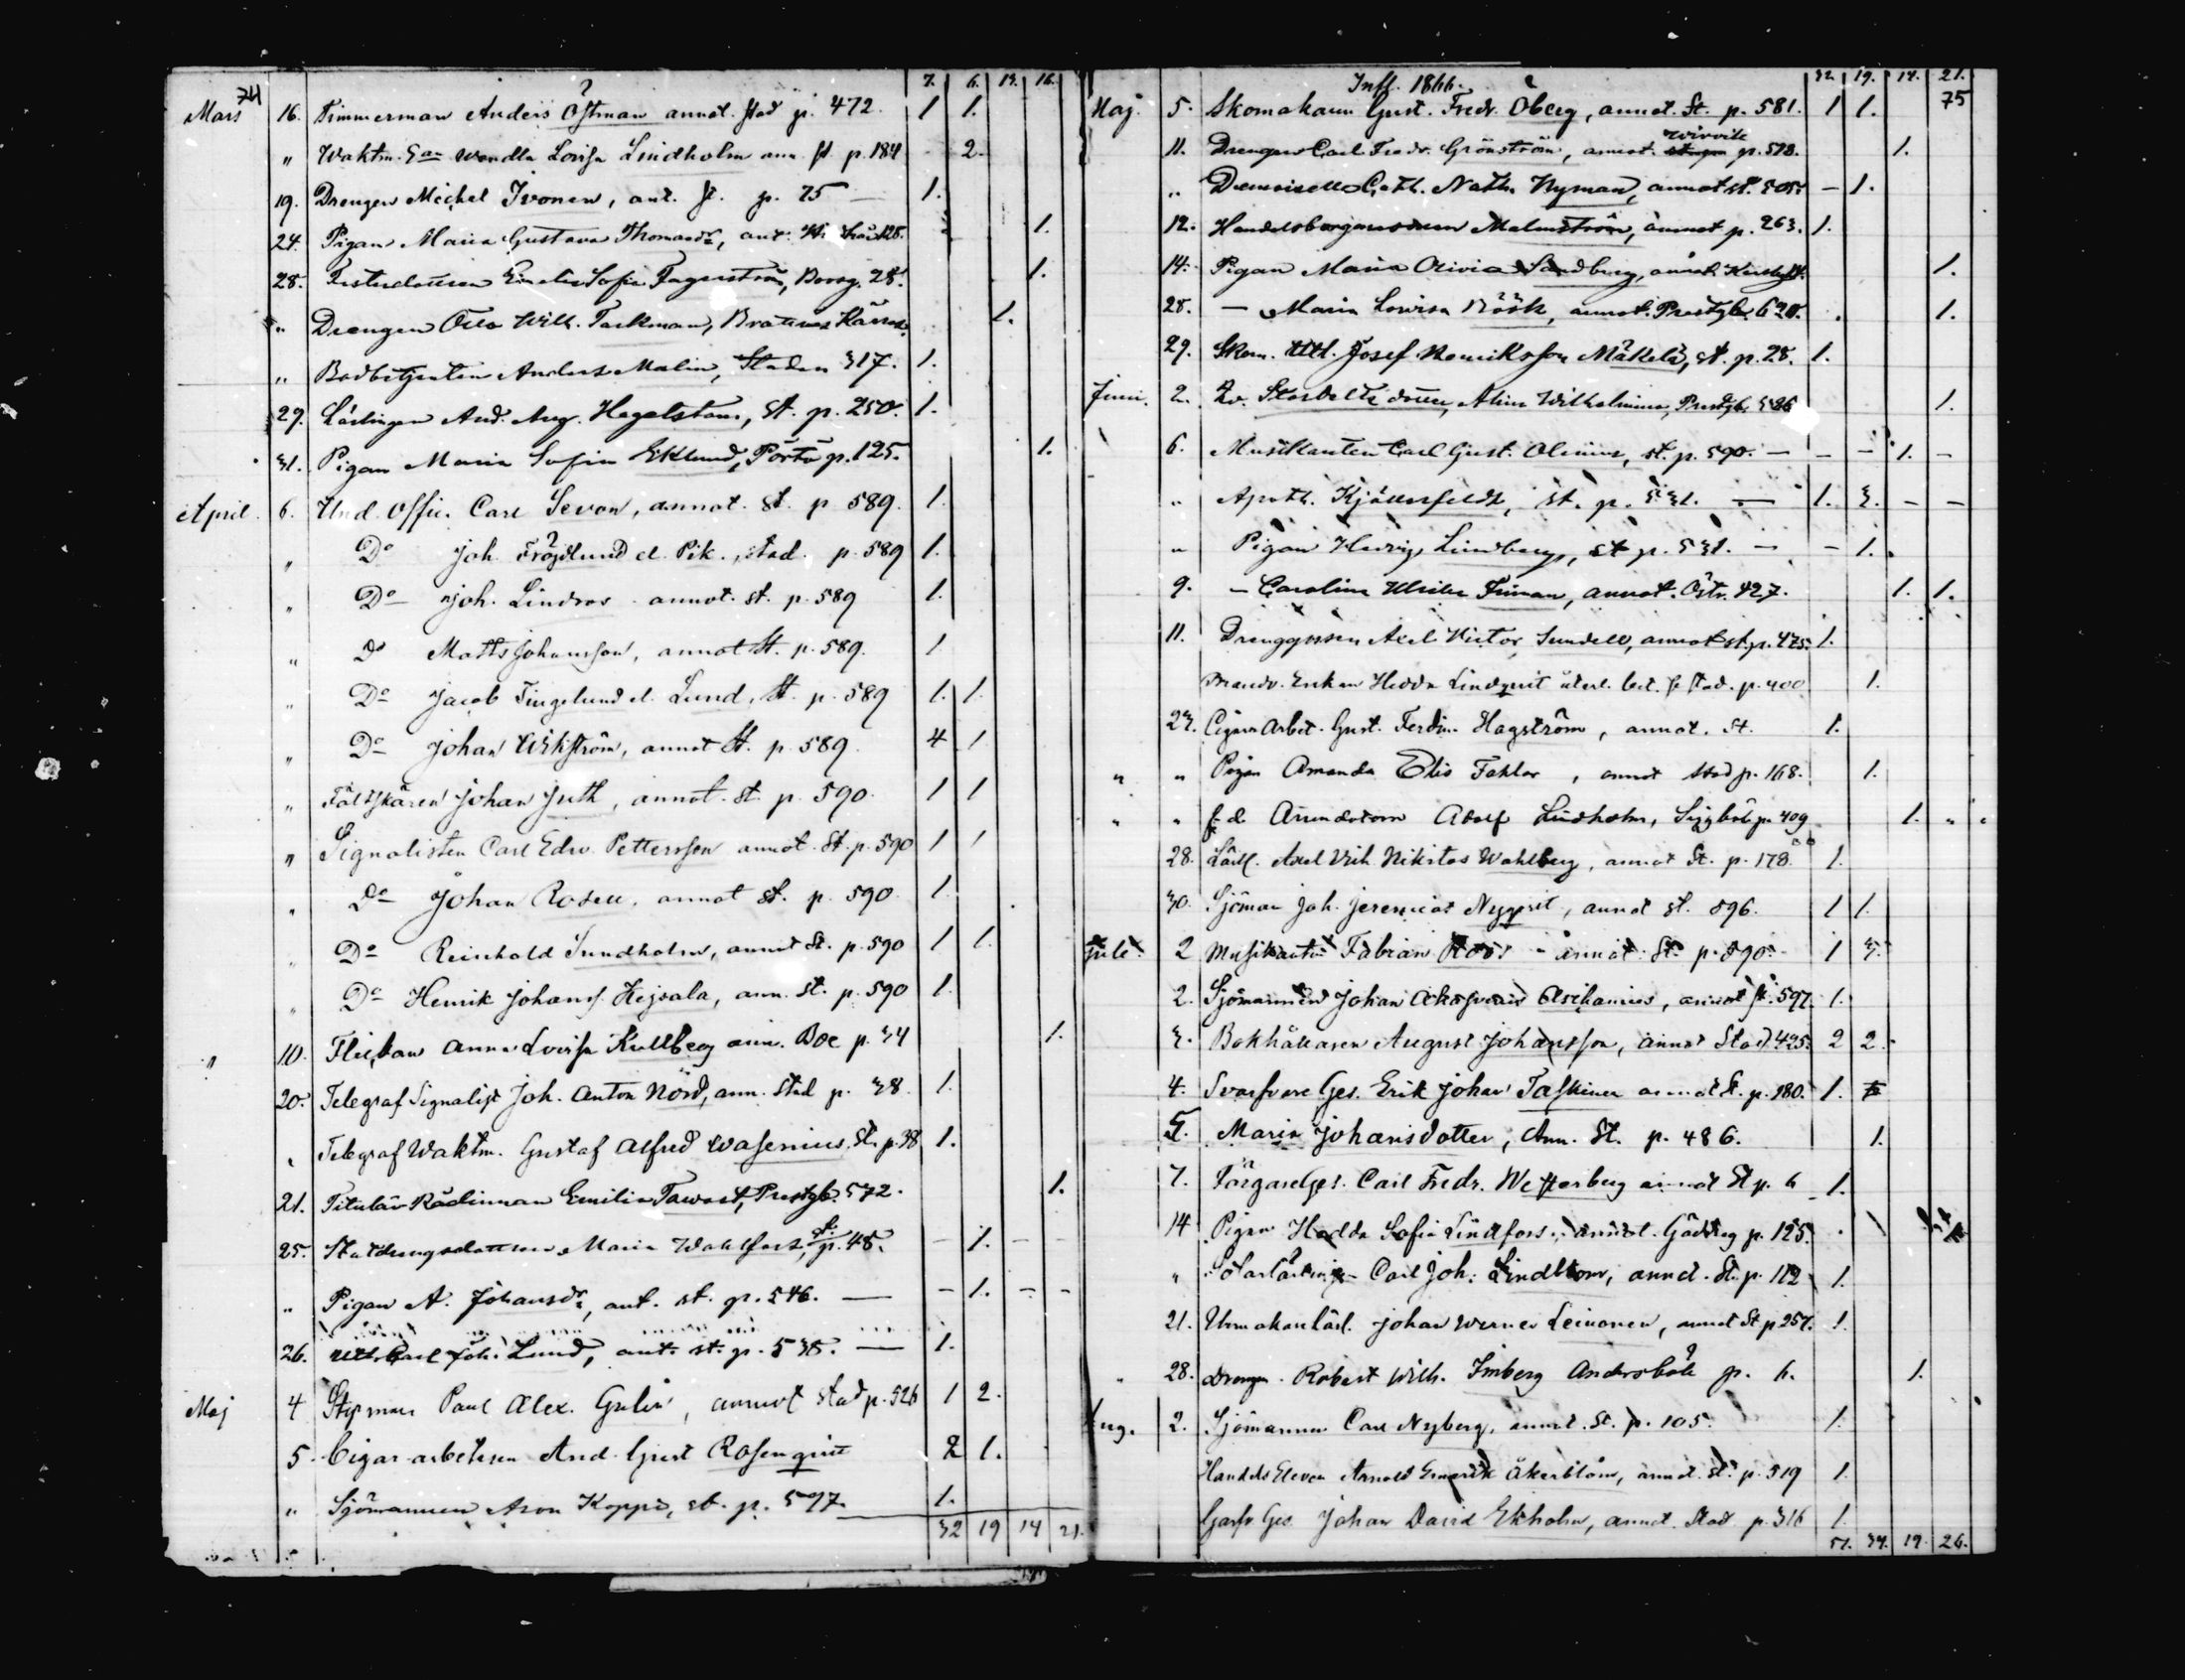 74 7. 6. 13. 16.
Mars 16. Timmerman Anders Östman annot. stad p. 472. 1 1.
" Waktm. Wendla Lovisa Lindholm ann. st p. 184 2.
19. Drengen Michel Ivonen, ant. st. p. 75 — 1.
24. Pigan Maria Gustava Thomasdr, ant. 128. 1.
28. Emelie Sofia Fagerström, Borg. 28. 1.
" Drengen Otto Wilh. Tackman, 1.
" Bodbetjenten Anders Malin, Staden 317. 1.
29. Lärlingen And. Aug. Hagelstam, St. p. 250. 1.
31. Pigan Maria Sofia Eklund, Pörtö p. 125. 1.
April. 6. Und. Offic. Carl Sevon, annot. St. p 589. 1.
" Do Joh. Fröjdlund el. Pik., stad. p. 589 1.
" Do Joh. Lindros annot. st. p. 589 1.
" Do Matts Johansson, annot St. p. 589. 1
" Do Jacob Tingelund el. Lund, St. p. 589 1. 1.
" Do Johan Wikström, annot St. p. 589. 4 1
" Fältskären Johan Juth, annot. st. p. 590. 1 1
" Signalisten Carl Edw. Pettersson annot. St. p. 590 1 1
" Do Johan Rosen, annot st. p. 590. 1.
" Do Reinhold Sundholm, annot St. p. 590 1 1.
" Do Henrik Johanss. Hejsala, ann. st. p. 590 1.
" 10. Flickan Anna Lovisa Kullberg ann. Boe p. 34 1.
20. Telegraf Signalist Joh. Anton Nörd, ann. Stad p. 38. 1.
" Telegraf Waktm. Gustaf Alfred Wasenius, St. p. 38 1.
21. Titulär Rådinnan Emilia Tawast, Prestgb. 572. 1.
25. Statdrengsdottren Maria Wahlfors, st. p. 48. – 1. – –
" Pigan A. Johansdr, ant. st. p. 546. — – 1. – –
26. Carl Joh. Lund, ant. st. p. — 1.
Maj 4 Styrman Paul Alex. Gulin, annot stad p. 526 1 2.
5. Cigar-arbetaren And. Gust Rosenqvist 2 1.
" Sjömannen Aron Koppi, st. p. 597. 1.
32 19 14 21.
Infl. 1866. 32 19. 14. 21.
75
Maj. 5. Skomakaren Gust. Fredr. Öberg, annot. St. p. 581. 1 1.
11. Drengen Carl Fredr. Grönström, annot. p. 578. 1.
" Demoiselle Cath. Nath. Nyman, annot st. 505. – 1.
12. Malmström, annot p. 263. 1.
14. Pigan Maria Olivia Sandberg, annot. 1.
28. — Maria Lovisa Röök, annot. Prestgb. 620. 1.
29. Skom. Josef Henriksson Mäkelä, st. p. 28. 1.
Juni. 2. Alina Wilhelmina, Prestgb. 1.
6. Musikanten Carl Gust. Olenius, st. p. 590. — – – 1. –
" Apoth. Kjällerfeldt, st. p. 531. — 1. 3. – –
" Pigan Hedvig Lindberg, st p. 531. — – 1.
9. — Carolina Ulrika Friman, annot. Östr. 427. 1. 1.
11. Drenggossen Axel Victor Sundell, annot st. p. 475. 1.
Enkan Hedda Lindqvist st stad. p. 400 1.
27. Cigarr Arbet. Gust. Ferdin. Hagström, annot. St. 1.
" " Pigan Amanda Elis Fahler, annot stad p. 168. 1.
" " f.d. Adolf Lindholm, Siggböle p. 409 1. " "
28. Lärl. Axel Wilh. Nikitas Wahlberg, annot St. p. 178. 1.
30. Sjöman Joh. Jeremias Nyqvist, annot st. 596. 1 1.
Juli. 2 Musikanten Fabian Roos – annot. St. p. 590. 1 3.
2. Sjömannen Johan Aschanius, annot st. 597. 1.
3. Bokhållaren August Johansson, annot Stad 425. 2 2.
4. Svarfvare Ges. Erik Johan Taskinen annot St. p. 180. 1.
5. Maria Johansdotter, Ann. St. p. 486. 1.
7. Färgareges. Carl Fredr. Westerberg annot St p. 6 1.
14 Pigan Hedda Sofia Lindfors, annot. p. 125.
" Carl Joh. Lindblom, annot. St. p. 112 1.
21. Urmakarlärl. Johan Werner Leinonen, annot St p 257. 1.
" 28. Drengen Robert Wilh. Imberg Andersböle p. 6. 1.
Aug. 2. Sjömannen Carl Nyberg, annot. St. p. 105. 1.
Handels Eleven Arnold Emerik Åkerblom, annot. St. p. 519 1.
Garfv. Ges. Johan David Ekholm, annot. Stad p. 316 1.
51. 34. 19. 26.